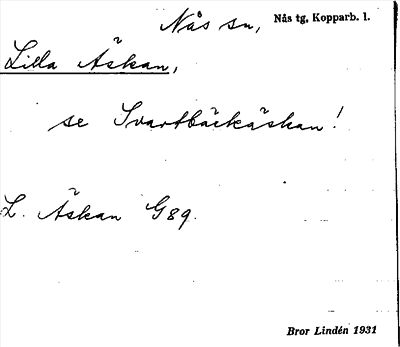 Nås sn, Nås tg, Kopparb. l.
Lilla Äskan,
se Svartbäckäskan!
L. Äskan G89.
Bror Lindén 1931